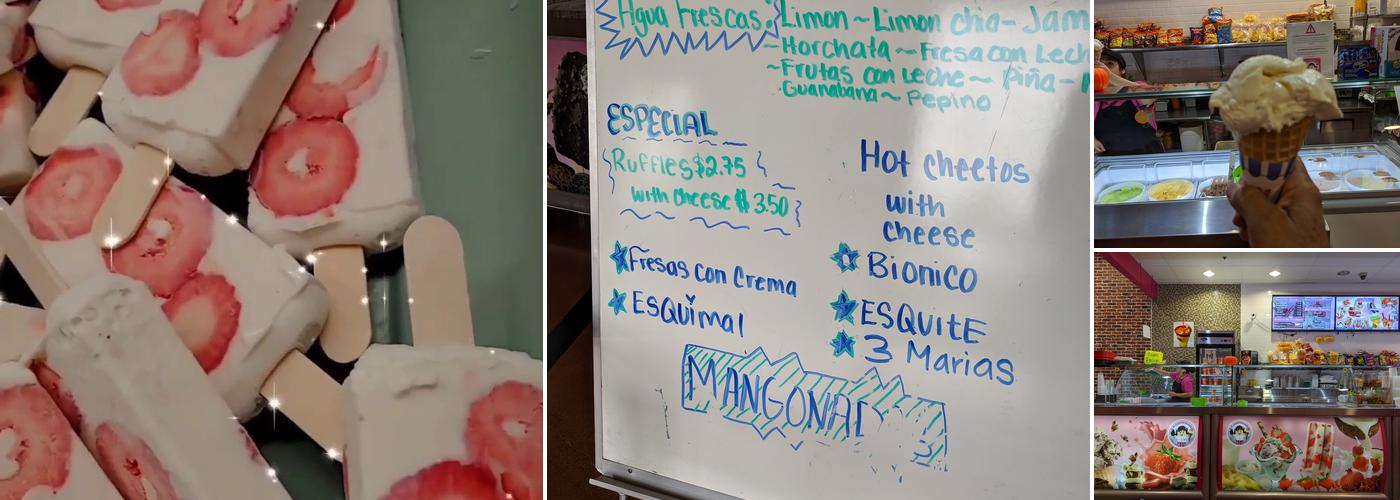 Agua Frescas: Limon ~ Limon chia - Jam
~ Horchata ~ Fresa con Lech
~ Frutas con Leche ~ Piña -
Guanabana ~ Pepino
ESPECIAL
Ruffles $2.75
with cheese $3.50
Hot cheetos
with
cheese
Fresas con Crema
Bionico
ESQUIMAL
ESQUITE
3 Marias